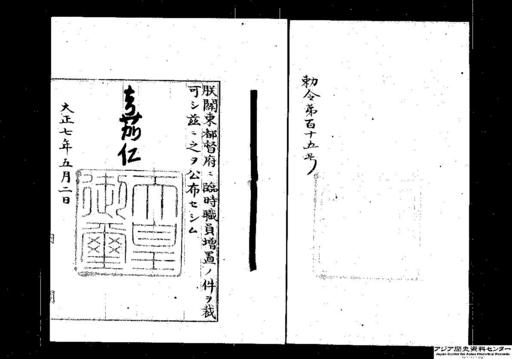 勅令第百十五号
朕關東都督府ニ臨時職員増置ノ件ヲ裁
可シ茲ニ之ヲ公布セシム
嘉仁
天皇
御璽
大正七年五月二日
アジア歴史資料センター
Japan Center for Asian Historical Records